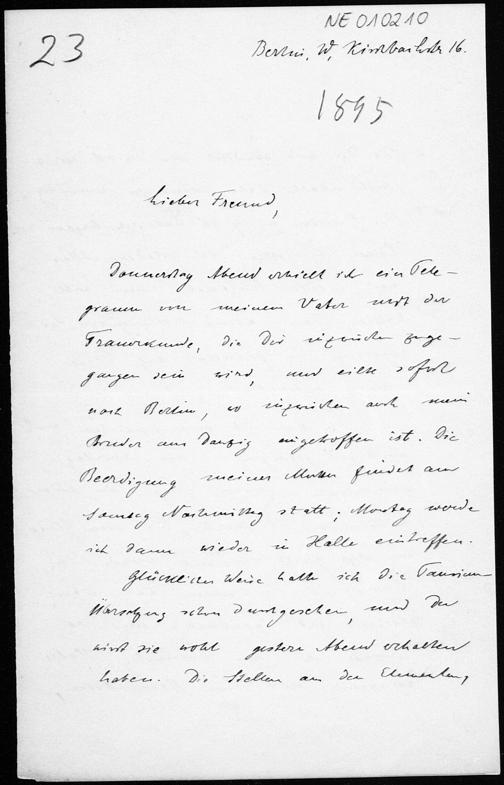 NE 010210
23
Berlin, W, Kirchbachstr 16.
1895
Lieber Freund,
Donnerstag Abend erhielt ich ein Tele-
gramm von meinem Vater mit der
Trauerkunde, die Dir inzwischen zuge-
gangen sein wird, und eilte sofort
nach Berlin, wo inzwischen auch mein
Bruder aus Danzig eingetroffen ist. Die
Beerdigung meiner Mutter findet am
Sonntag Nachmittag statt; Montag werde
ich dann wieder in Halle eintreffen.
Glücklicher Weise hatte ich die
schon durchgesehen, und Du
wirst sie wohl gestern Abend erhalten
haben. Die Stellen aus den Elementen,